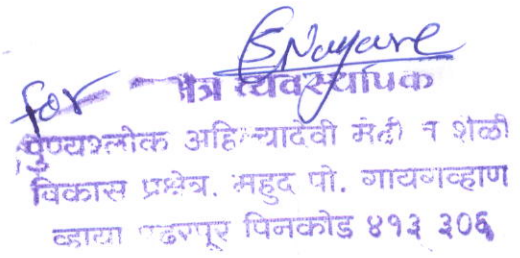 for
क्षेत्र व्यवस्थापक
पुण्यश्लोक अहिल्यादेवी मेंढी व शेळी
विकास प्रक्षेत्र. महुद पो. गायगव्हाण
व्हाया पंढरपूर पिनकोड ४१३ ३०६